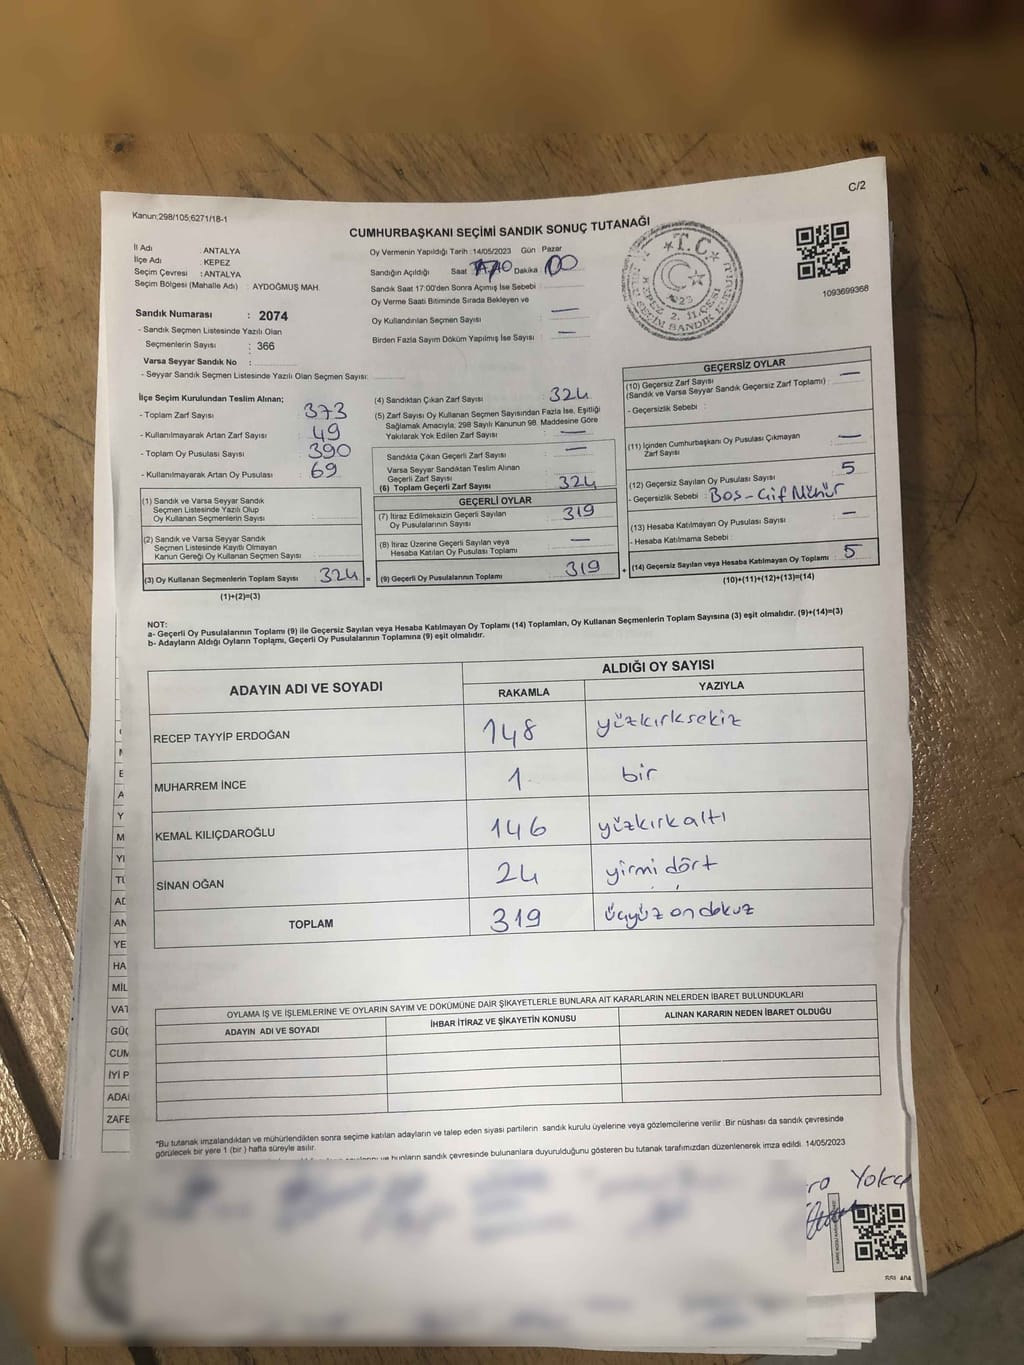 C/2
Kanun;298/105;6271/18-1
CUMHURBAŞKANI SEÇİMİ SANDIK SONUÇ TUTANAĞI
İl Adı : ANTALYA
İlçe Adı : KEPEZ
Seçim Çevresi : ANTALYA
Seçim Bölgesi (Mahalle Adı) : AYDOĞMUŞ MAH.
Oy Vermenin Yapıldığı Tarih :14/05/2023 Gün Pazar
Sandığın Açıldığı Saat Dakika 00
Sandık Saat 17:00'den Sonra Açımış İse Sebebi :
Oy Verme Saati Bitiminde Sırada Bekleyen ve
Oy Kullandırılan Seçmen Sayısı —
Birden Fazla Sayım Döküm Yapılmış İse Sayısı : —
T.C.
1093699368
Sandık Numarası : 2074
- Sandık Seçmen Listesinde Yazılı Olan
Seçmenlerin Sayısı : 366
Varsa Seyyar Sandık No :
- Seyyar Sandık Seçmen Listesinde Yazılı Olan Seçmen Sayısı:
İlçe Seçim Kurulundan Teslim Alınan;
- Toplam Zarf Sayısı : 373
- Kullanılmayarak Artan Zarf Sayısı : 49
- Toplam Oy Pusulası Sayısı : 390
- Kullanılmayarak Artan Oy Pusulası : 69
(1) Sandık ve Varsa Seyyar Sandık
Seçmen Listesinde Yazılı Olup
Oy Kullanan Seçmenlerin Sayısı :
(2) Sandık ve Varsa Seyyar Sandık
Seçmen Listesinde Kayıtlı Olmayan
Kanun Gereği Oy Kullanan Seçmen Sayısı :
(3) Oy Kullanan Seçmenlerin Toplam Sayısı 324 =
(1)+(2)=(3)
(4) Sandıktan Çıkan Zarf Sayısı : 324
(5) Zarf Sayısı Oy Kullanan Seçmen Sayısından Fazla İse, Eşitliği
Sağlamak Amacıyla, 298 Sayılı Kanunun 98. Maddesine Göre
Yakılarak Yok Edilen Zarf Sayısı : —
Sandıkta Çıkan Geçerli Zarf Sayısı : —
Varsa Seyyar Sandıktan Teslim Alınan
Geçerli Zarf Sayısı :
(6) Toplam Geçerli Zarf Sayısı 324
GEÇERLİ OYLAR
(7) İtiraz Edilmeksizin Geçerli Sayılan
Oy Pusulalarının Sayısı : 319
(8) İtiraz Üzerine Geçerli Sayılan veya
Hesaba Katılan Oy Pusulası Toplamı : —
(9) Geçerli Oy Pusulalarının Toplamı 319 +
GEÇERSİZ OYLAR
(10) Geçersiz Zarf Sayısı
(Sandık ve Varsa Seyyar Sandık Geçersiz Zarf Toplamı) : —
- Geçersizlik Sebebi :
(11) İçinden Cumhurbaşkanı Oy Pusulası Çıkmayan
Zarf Sayısı : —
(12) Geçersiz Sayılan Oy Pusulası Sayısı : 5
- Geçersizlik Sebebi : Boş - Çif Mühür
(13) Hesaba Katılmayan Oy Pusulası Sayısı : —
- Hesaba Katılmama Sebebi :
(14) Geçersiz Sayılan veya Hesaba Katılmayan Oy Toplamı 5
(10)+(11)+(12)+(13)=(14)
NOT:
a- Geçerli Oy Pusulalarının Toplamı (9) ile Geçersiz Sayılan veya Hesaba Katılmayan Oy Toplamı (14) Toplamları, Oy Kullanan Seçmenlerin Toplam Sayısına (3) eşit olmalıdır. (9)+(14)=(3)
b- Adayların Aldığı Oyların Toplamı, Geçerli Oy Pusulalarının Toplamına (9) eşit olmalıdır.
ADAYIN ADI VE SOYADI ALDIĞI OY SAYISI
RAKAMLA YAZIYLA
RECEP TAYYİP ERDOĞAN 148 yüzkırksekiz
MUHARREM İNCE 1 bir
KEMAL KILIÇDAROĞLU 146 yüzkırkaltı
SİNAN OĞAN 24 yirmi dört
TOPLAM 319 üçyüz on dokuz
OYLAMA İŞ VE İŞLEMLERİNE VE OYLARIN SAYIM VE DÖKÜMÜNE DAİR ŞİKAYETLERLE BUNLARA AİT KARARLARIN NELERDEN İBARET BULUNDUKLARI
ADAYIN ADI VE SOYADI İHBAR İTİRAZ VE ŞİKAYETİN KONUSU ALINAN KARARIN NEDEN İBARET OLDUĞU
YE
HA
MİL
VAT
CUM
İYİ P
ADA
ZAFE
*Bu tutanak imzalandıktan ve mühürlendikten sonra seçime katılan adayların ve talep eden siyasi partilerin sandık kurulu üyelerine veya gözlemcilerine verilir. Bir nüshası da sandık çevresinde
görülecek bir yere 1 (bir ) hafta süreyle asılır.
bunların sandık çevresinde bulunanlara duyurulduğunu gösteren bu tutanak tarafımızdan düzenlenerek imza edildi. 14/05/2023